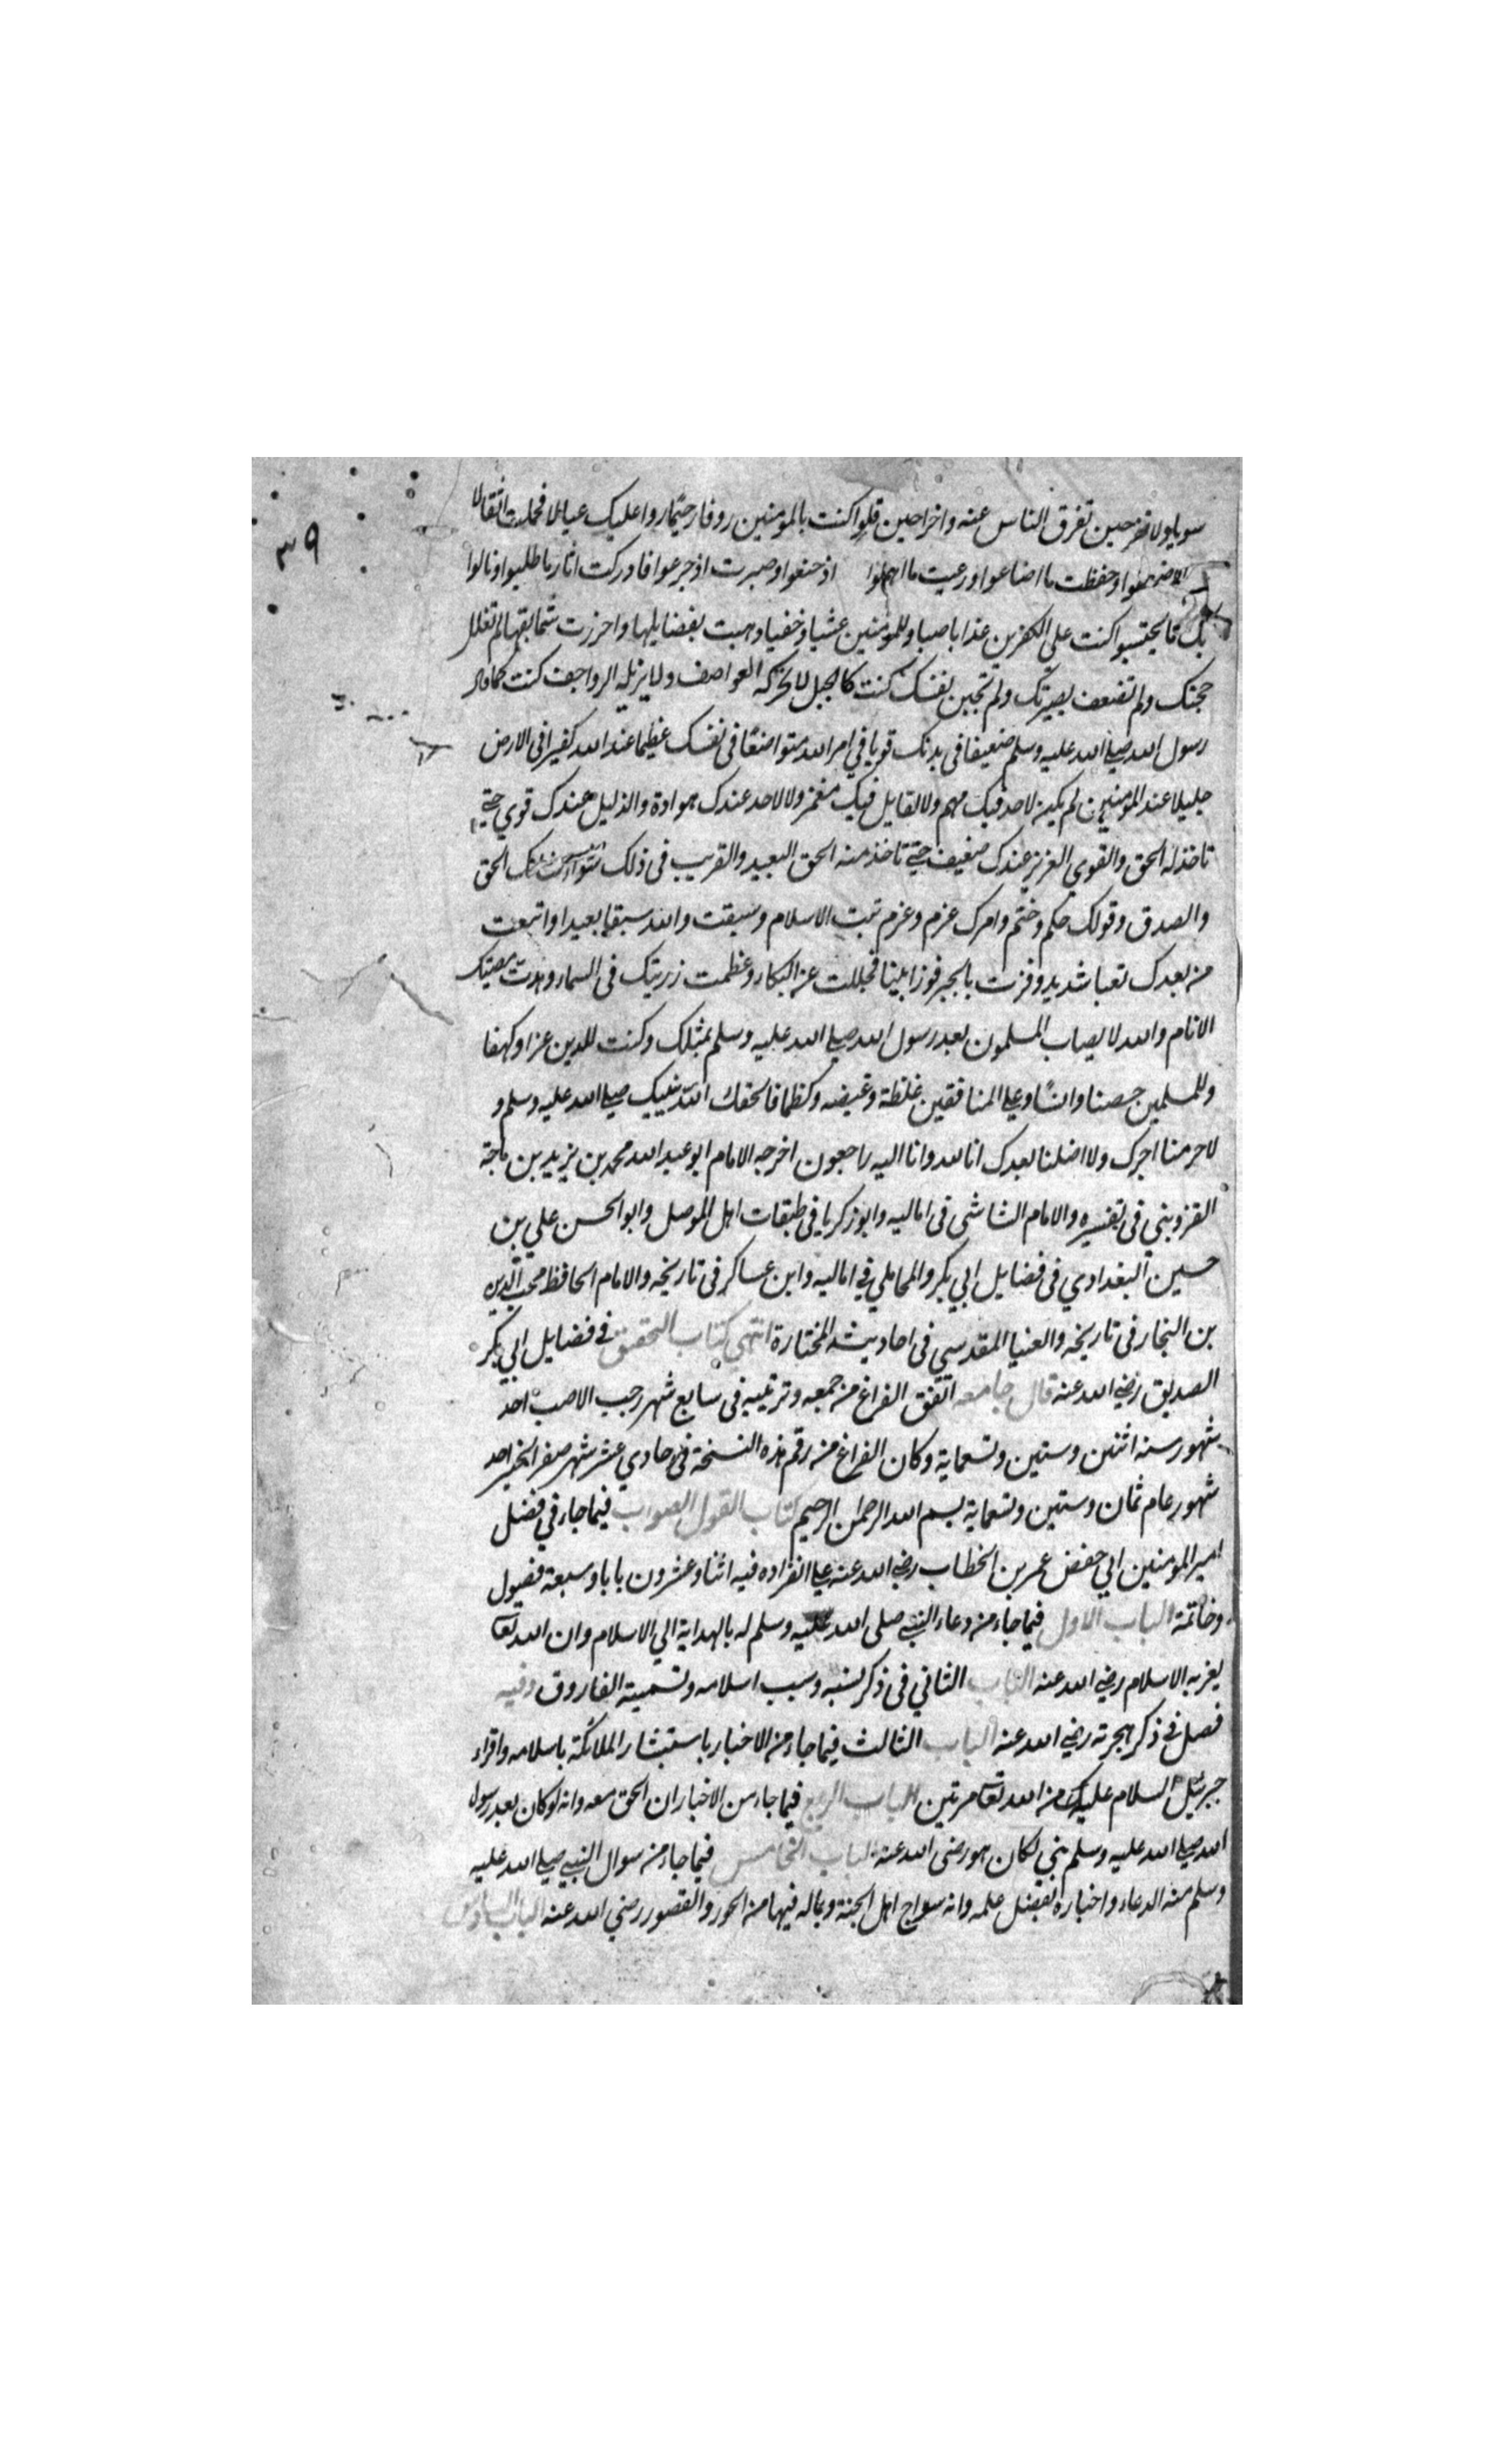 ٣٩
حين تفرق الناس عنه واخرا حين قلوا كنت بالمومنين روفا رحيما روا عليك عيالا فحملت اثقالا
وحفظت ما اضاعوا ورعيت ما اهملوا اذ خنعوا وصبرت اذ جزعوا فادركت اثار ما طلبوا ونالوا
بك ما لم يحتسبوا كنت على الكفرين عذابا صبا وللمومنين غيثا وخفيا وهبت بفضايلها واحرزت سابقها لم تفلل
حجتك ولم تضعف بصيرتك ولم تجبن نفسك كنت كالجبل لا تحركه العواصف ولا يزيله الرواجف كنت كما قال
رسول الله صلى الله عليه وسلم ضعيفا فى بدنك قويا في امر الله متواضعا فى نفسك عظيما عند الله كفيرا فى الارض
جليلا عند المومنين لم يكن لاحد فيك مهم ولا لقايل فيك مغمز ولا لاحد عندك هوادة والذليل عندك قوي حتى
تاخذ له الحق والقوي العزيز عندك ضعيف حتى تاخذ منه الحق البعيد والقريب فى ذلك سواء الحق
والصدق وقولك حكم وختم وامرك عزم وعزم ثبت الاسلام وسبقت والله سبقا بعيدا واتبعت
من بعدك تعبا شديد وفزت بالخير فوزا بلينا فجللت عن البكاء وعظمت زريتك فى السماء وهدت مصيبتك
الانام والله لا يصاب المسلمون بعد رسول الله صلى الله عليه وسلم بمثلك وكنت للدين عزا وكهفا
وللمسلمين حصنا وانسا وعلى المنافقين غلظة وغيضه وكظما فالحقك الله بنبيك صلى الله عليه وسلم و
لا حرمنا اجرك ولا اضلنا بعدك انا لله وانا اليه راجعون اخرجه الامام ابو عبد الله محمد بن يزيد بن ماجة
القزويني فى تفسيره والامام الشاشى فى اماليه وابو زكريا فى طبقات اهل الموصل وابو الحسن علي بن
حسين البغدادي فى فضايل ابي بكر والمحاملي في اماليه وابن عساكر فى تاريخه والامام الحافظ محب الدين
بن النجار فى تاريخه والضيا المقدسي فى احاديثه المختارة انتهى كتاب التحقيق فى فضايل ابي بكر
الصديق رضي الله عنه قال جامعه اتفق الفراغ من جمعه وترتيبه فى سابع شهر رجب الاصب احد
شهور سنه اثنين وستين وتسعماية وكان الفراغ من رقم هذه النسخة فى حادي عشر شهر صفر الخير احد
شهور عام ثمان وستين وتسعماية بسم الله الرحمن الرحيم كتاب القول الصواب فيما جاء في فضل
امير المومنين ابي حفص عمر بن الخطاب رضي الله عنه على انفراده فيه اثنا وعشرون بابا وسبعة فصول
وخاتمة الباب الاول فيما جاء من دعاء النبي صلى الله عليه وسلم له بالهداية الي الاسلام وان الله تعا
يعز به الاسلام رضي الله عنه الباب الثاني فى ذكر نسبه وسبب اسلامه وتسميته الفاروق وفيه
فصل فى ذكر هجرته رضي الله عنه الباب الثالث فيما جاء من الاخبار باستبشار الملائكة باسلامه واقراء
جبرئيل السلام عليه من الله تعا مرتين الباب الربع فيما جاء من الاخبار ان الحق معه وانه لو كان بعد رسول
الله صلى الله عليه وسلم نبي لكان هو رضى الله عنه الباب الخامس فيما جاء من سوال النبي صلى الله عليه
وسلم منه الدعاء واخباره بفضل علمه وانه سراج اهل الجنة وبماله فيها من الحور والقصور رضي الله عنه الباب السادس